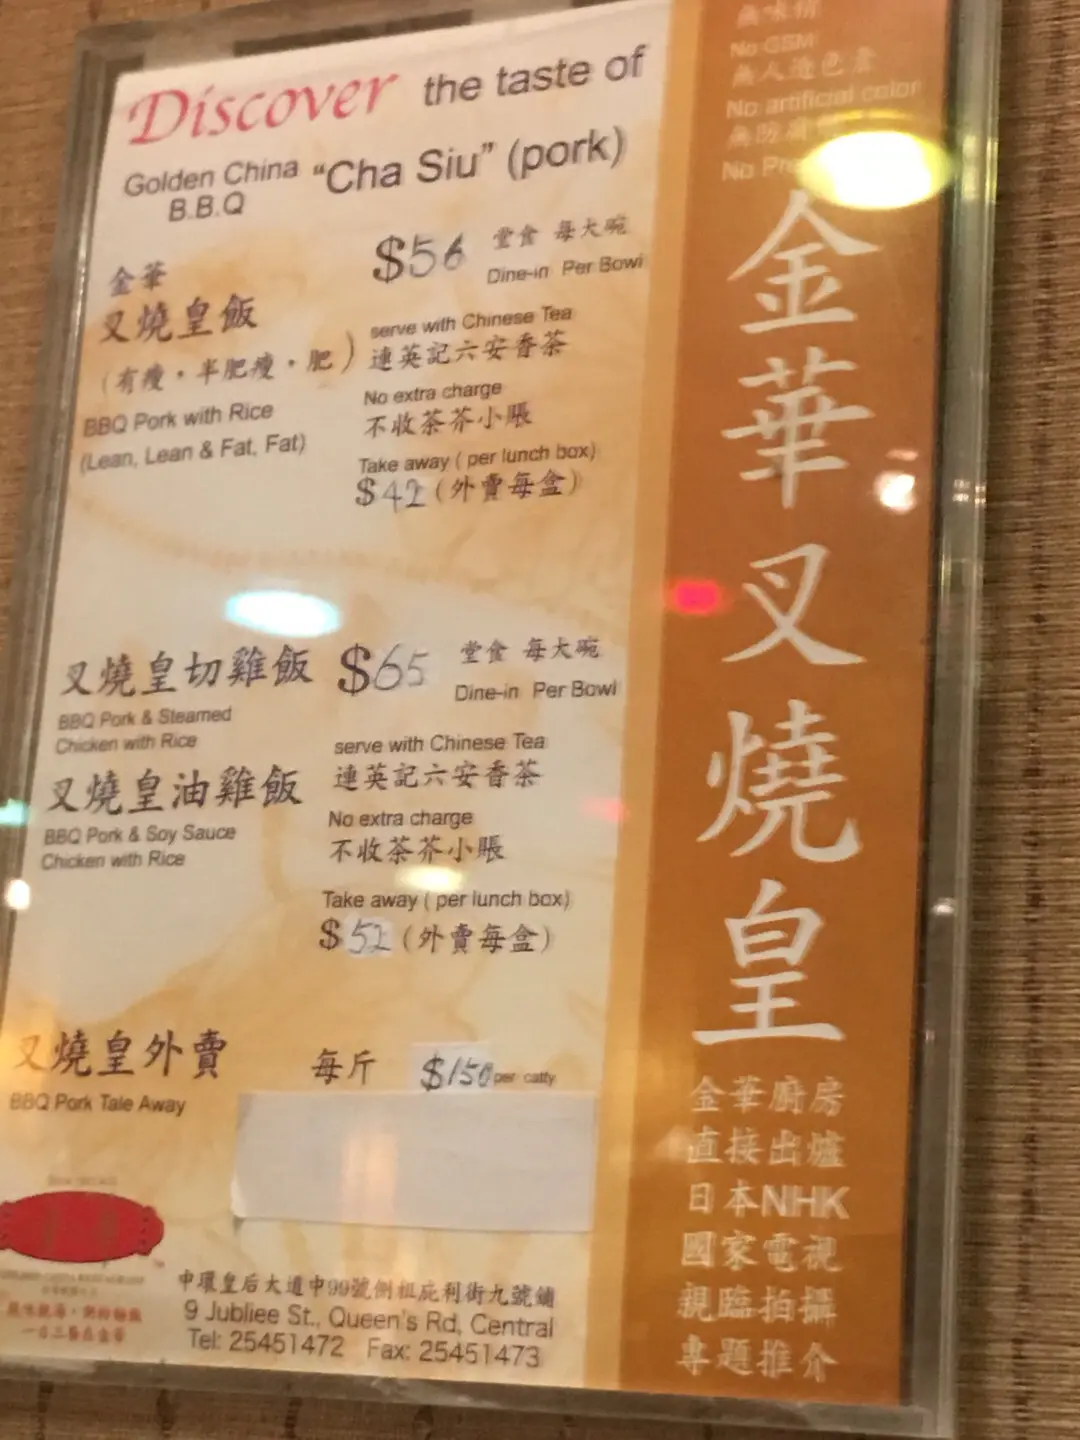 Discover the taste of
Golden China "Cha Siu" (pork)
B.B.Q
金華
叉燒皇飯
(有瘦·半肥瘦·肥)
BBQ Pork with Rice
(Lean, Lean & Fat, Fat)
$56 堂食 每大碗
Dine-in Per Bowl
serve with Chinese Tea
連英記六安香茶
No extra charge
不收茶芥小賬
Take away ( per lunch box)
$42 (外賣每盒)
叉燒皇切雞飯
BBQ Pork & Steamed
Chicken with Rice
叉燒皇油雞飯
BBQ Pork & Soy Sauce
Chicken with Rice
$65 堂食 每大碗
Dine-in Per Bowl
serve with Chinese Tea
連英記六安香茶
No extra charge
不收茶芥小賬
Take away ( per lunch box)
$52 (外賣每盒)
叉燒皇外賣 每斤 $150 per catty
BBQ Pork Tale Away
中環皇后大道中99號側祖庇利街九號鋪
9 Jubliee St., Queen's Rd, Central
Tel: 25451472 Fax: 25451473
無味精
No GSM
無人造色素
No artificial color
無防
No
金華叉燒皇
金華廚房
直接出爐
日本NHK
國家電視
親臨拍攝
專題推介